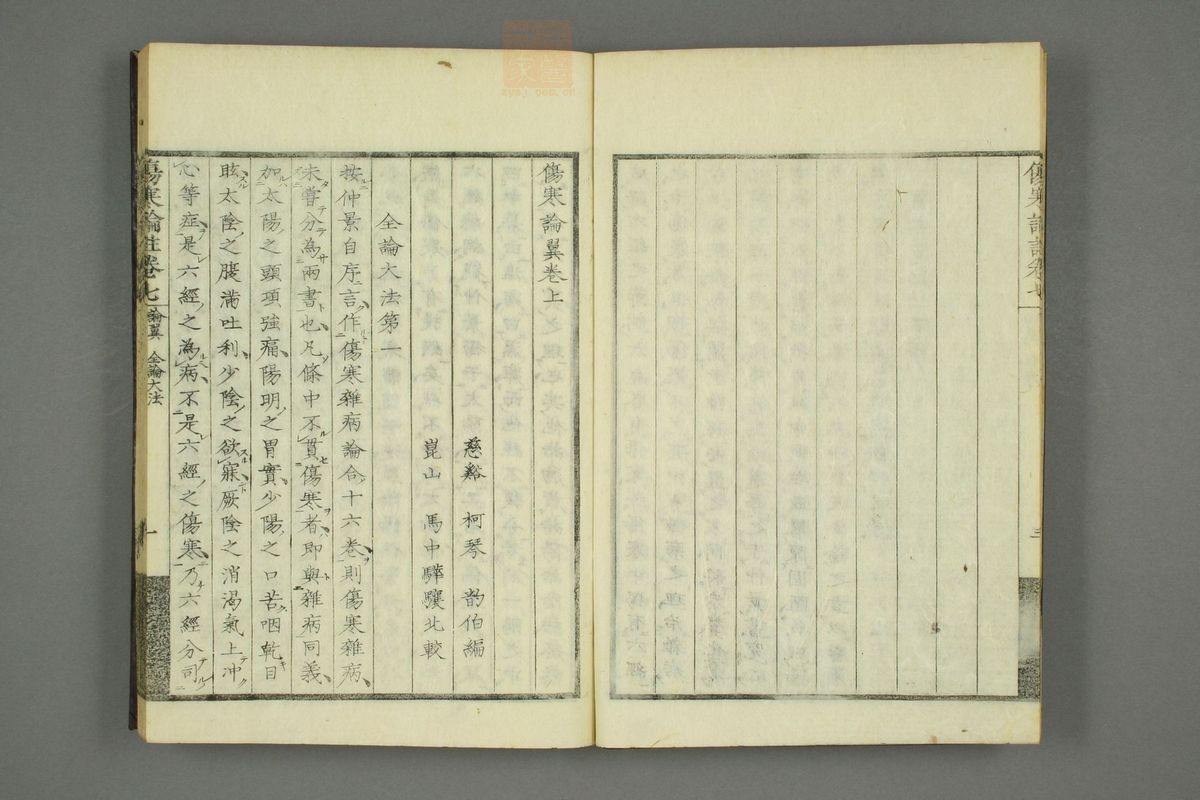 傷寒論註卷七
三
傷寒論翼卷上
慈谿　柯琴　韵伯編
崑山　馬中驊驤北較
全論大法第一
按仲景自序言作傷寒雜病論合十六卷則傷寒雜病
未嘗分為兩書也凡條中不貫傷寒者即與雜病同義
如太陽之頭項強痛陽明之胃實少陽之口苦咽乾目
眩太陰之腹滿吐利少陰之欲寐厥陰之消渴氣上冲
心等症是六經之為病不是六經之傷寒乃六經分司
傷寒論註卷七
論翼　全論大法
一
zysj.com.cn